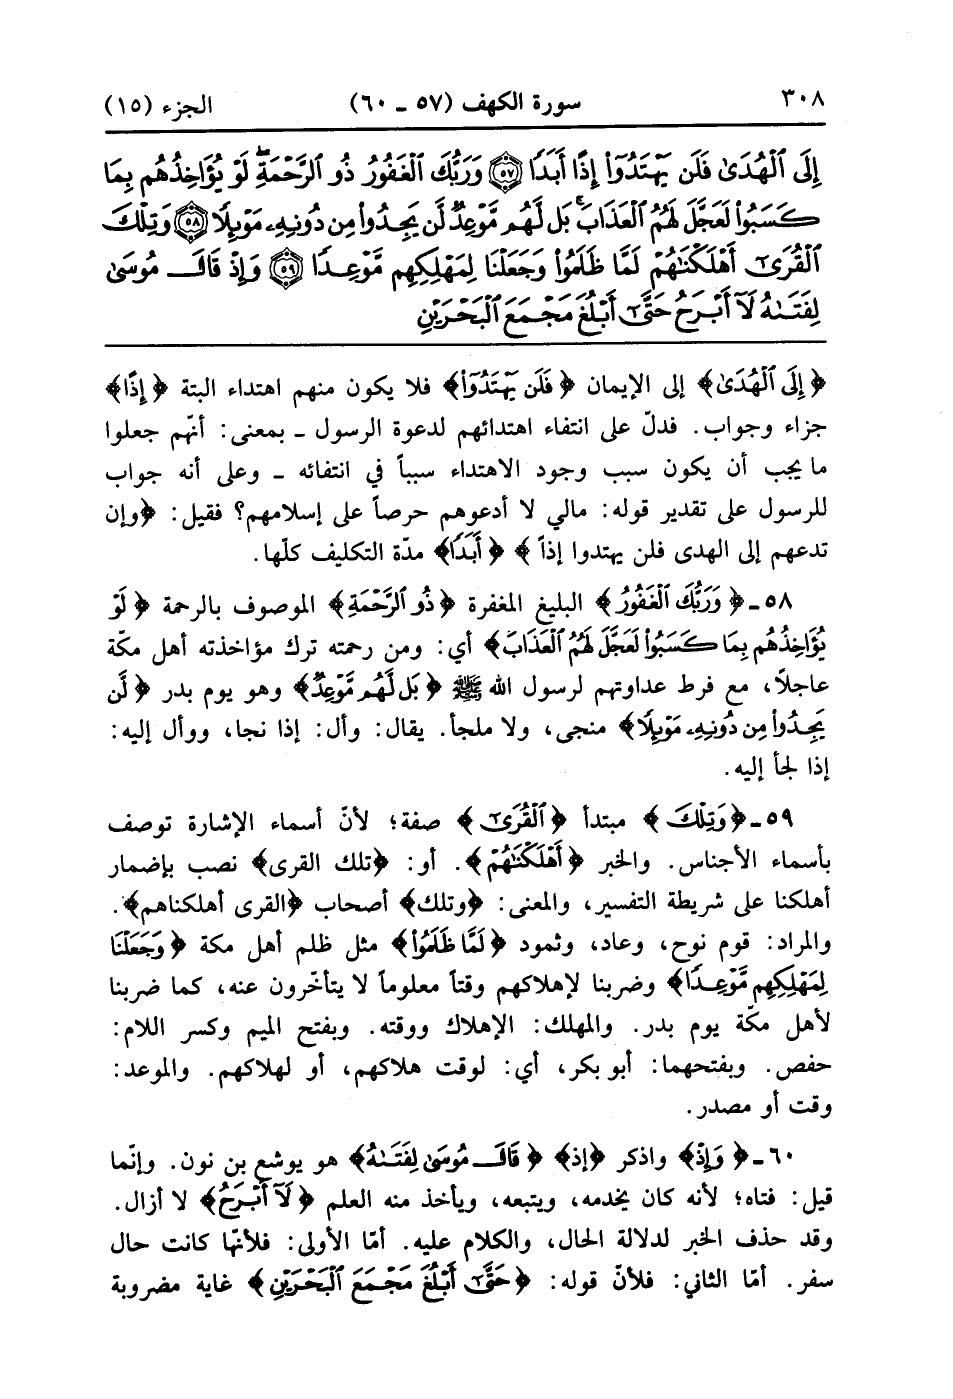 ٣٠٨ سورة الكهف (٥٧ ـ ٦٠) الجزء (١٥)
إِلَى ٱلْهُدَىٰ فَلَن يَهْتَدُوٓا۟ إِذًا أَبَدًا ٥٧ وَرَبُّكَ ٱلْغَفُورُ ذُو ٱلرَّحْمَةِ ۖ لَوْ يُؤَاخِذُهُم بِمَا
كَسَبُوا۟ لَعَجَّلَ لَهُمُ ٱلْعَذَابَ ۚ بَل لَّهُم مَّوْعِدٌ لَّن يَجِدُوا۟ مِن دُونِهِۦ مَوْئِلًا ٥٨ وَتِلْكَ
ٱلْقُرَىٰٓ أَهْلَكْنَـٰهُمْ لَمَّا ظَلَمُوا۟ وَجَعَلْنَا لِمَهْلِكِهِم مَّوْعِدًا ٥٩ وَإِذْ قَالَ مُوسَىٰ
لِفَتَىٰهُ لَآ أَبْرَحُ حَتَّىٰٓ أَبْلُغَ مَجْمَعَ ٱلْبَحْرَيْنِ
﴿إِلَى ٱلْهُدَىٰ﴾ إلى الإيمان ﴿فَلَن يَهْتَدُوٓا۟﴾ فلا يكون منهم اهتداء البتة ﴿إِذًا﴾
جزاء وجواب. فدلّ على انتفاء اهتدائهم لدعوة الرسول ـ بمعنى: أنّهم جعلوا
ما يجب أن يكون سبب وجود الاهتداء سبباً في انتفائه ـ وعلى أنه جواب
للرسول على تقدير قوله: مالي لا أدعوهم حرصاً على إسلامهم؟ فقيل: ﴿وإن
تدعهم إلى الهدى فلن يهتدوا إذاً﴾ ﴿أَبَدًا﴾ مدّة التكليف كلّها.
٥٨ـ ﴿وَرَبُّكَ ٱلْغَفُورُ﴾ البليغ المغفرة ﴿ذُو ٱلرَّحْمَةِ﴾ الموصوف بالرحمة ﴿لَوْ
يُؤَاخِذُهُم بِمَا كَسَبُوا۟ لَعَجَّلَ لَهُمُ ٱلْعَذَابَ﴾ أي: ومن رحمته ترك مؤاخذته أهل مكة
عاجلاً، مع فرط عداوتهم لرسول الله ﷺ ﴿بَل لَّهُم مَّوْعِدٌ﴾ وهو يوم بدر ﴿لَّن
يَجِدُوا۟ مِن دُونِهِۦ مَوْئِلًا﴾ منجى، ولا ملجأ. يقال: وأل: إذا نجا، ووأل إليه:
إذا لجأ إليه.
٥٩ـ ﴿وَتِلْكَ﴾ مبتدأ ﴿ٱلْقُرَىٰٓ﴾ صفة؛ لأنّ أسماء الإشارة توصف
بأسماء الأجناس. والخبر ﴿أَهْلَكْنَـٰهُمْ﴾. أو: ﴿تلك القرى﴾ نصب بإضمار
أهلكنا على شريطة التفسير، والمعنى: ﴿وتلك﴾ أصحاب ﴿القرى أهلكناهم﴾.
والمراد: قوم نوح، وعاد، وثمود ﴿لَمَّا ظَلَمُوا۟﴾ مثل ظلم أهل مكة ﴿وَجَعَلْنَا
لِمَهْلِكِهِم مَّوْعِدًا﴾ وضربنا لإهلاكهم وقتاً معلوماً لا يتأخّرون عنه، كما ضربنا
لأهل مكّة يوم بدر. والمهلك: الإهلاك ووقته. وبفتح الميم وكسر اللام:
حفص. وبفتحهما: أبو بكر، أي: لوقت هلاكهم، أو لهلاكهم. والموعد:
وقت أو مصدر.
٦٠ـ ﴿وَإِذْ﴾ واذكر ﴿إذ﴾ ﴿قَالَ مُوسَىٰ لِفَتَىٰهُ﴾ هو يوشع بن نون. وإنّما
قيل: فتاه؛ لأنه كان يخدمه، ويتبعه، ويأخذ منه العلم ﴿لَآ أَبْرَحُ﴾ لا أزال.
وقد حذف الخبر لدلالة الحال، والكلام عليه. أمّا الأولى: فلأنّها كانت حال
سفر. أمّا الثاني: فلأنّ قوله: ﴿حَتَّىٰٓ أَبْلُغَ مَجْمَعَ ٱلْبَحْرَيْنِ﴾ غاية مضروبة